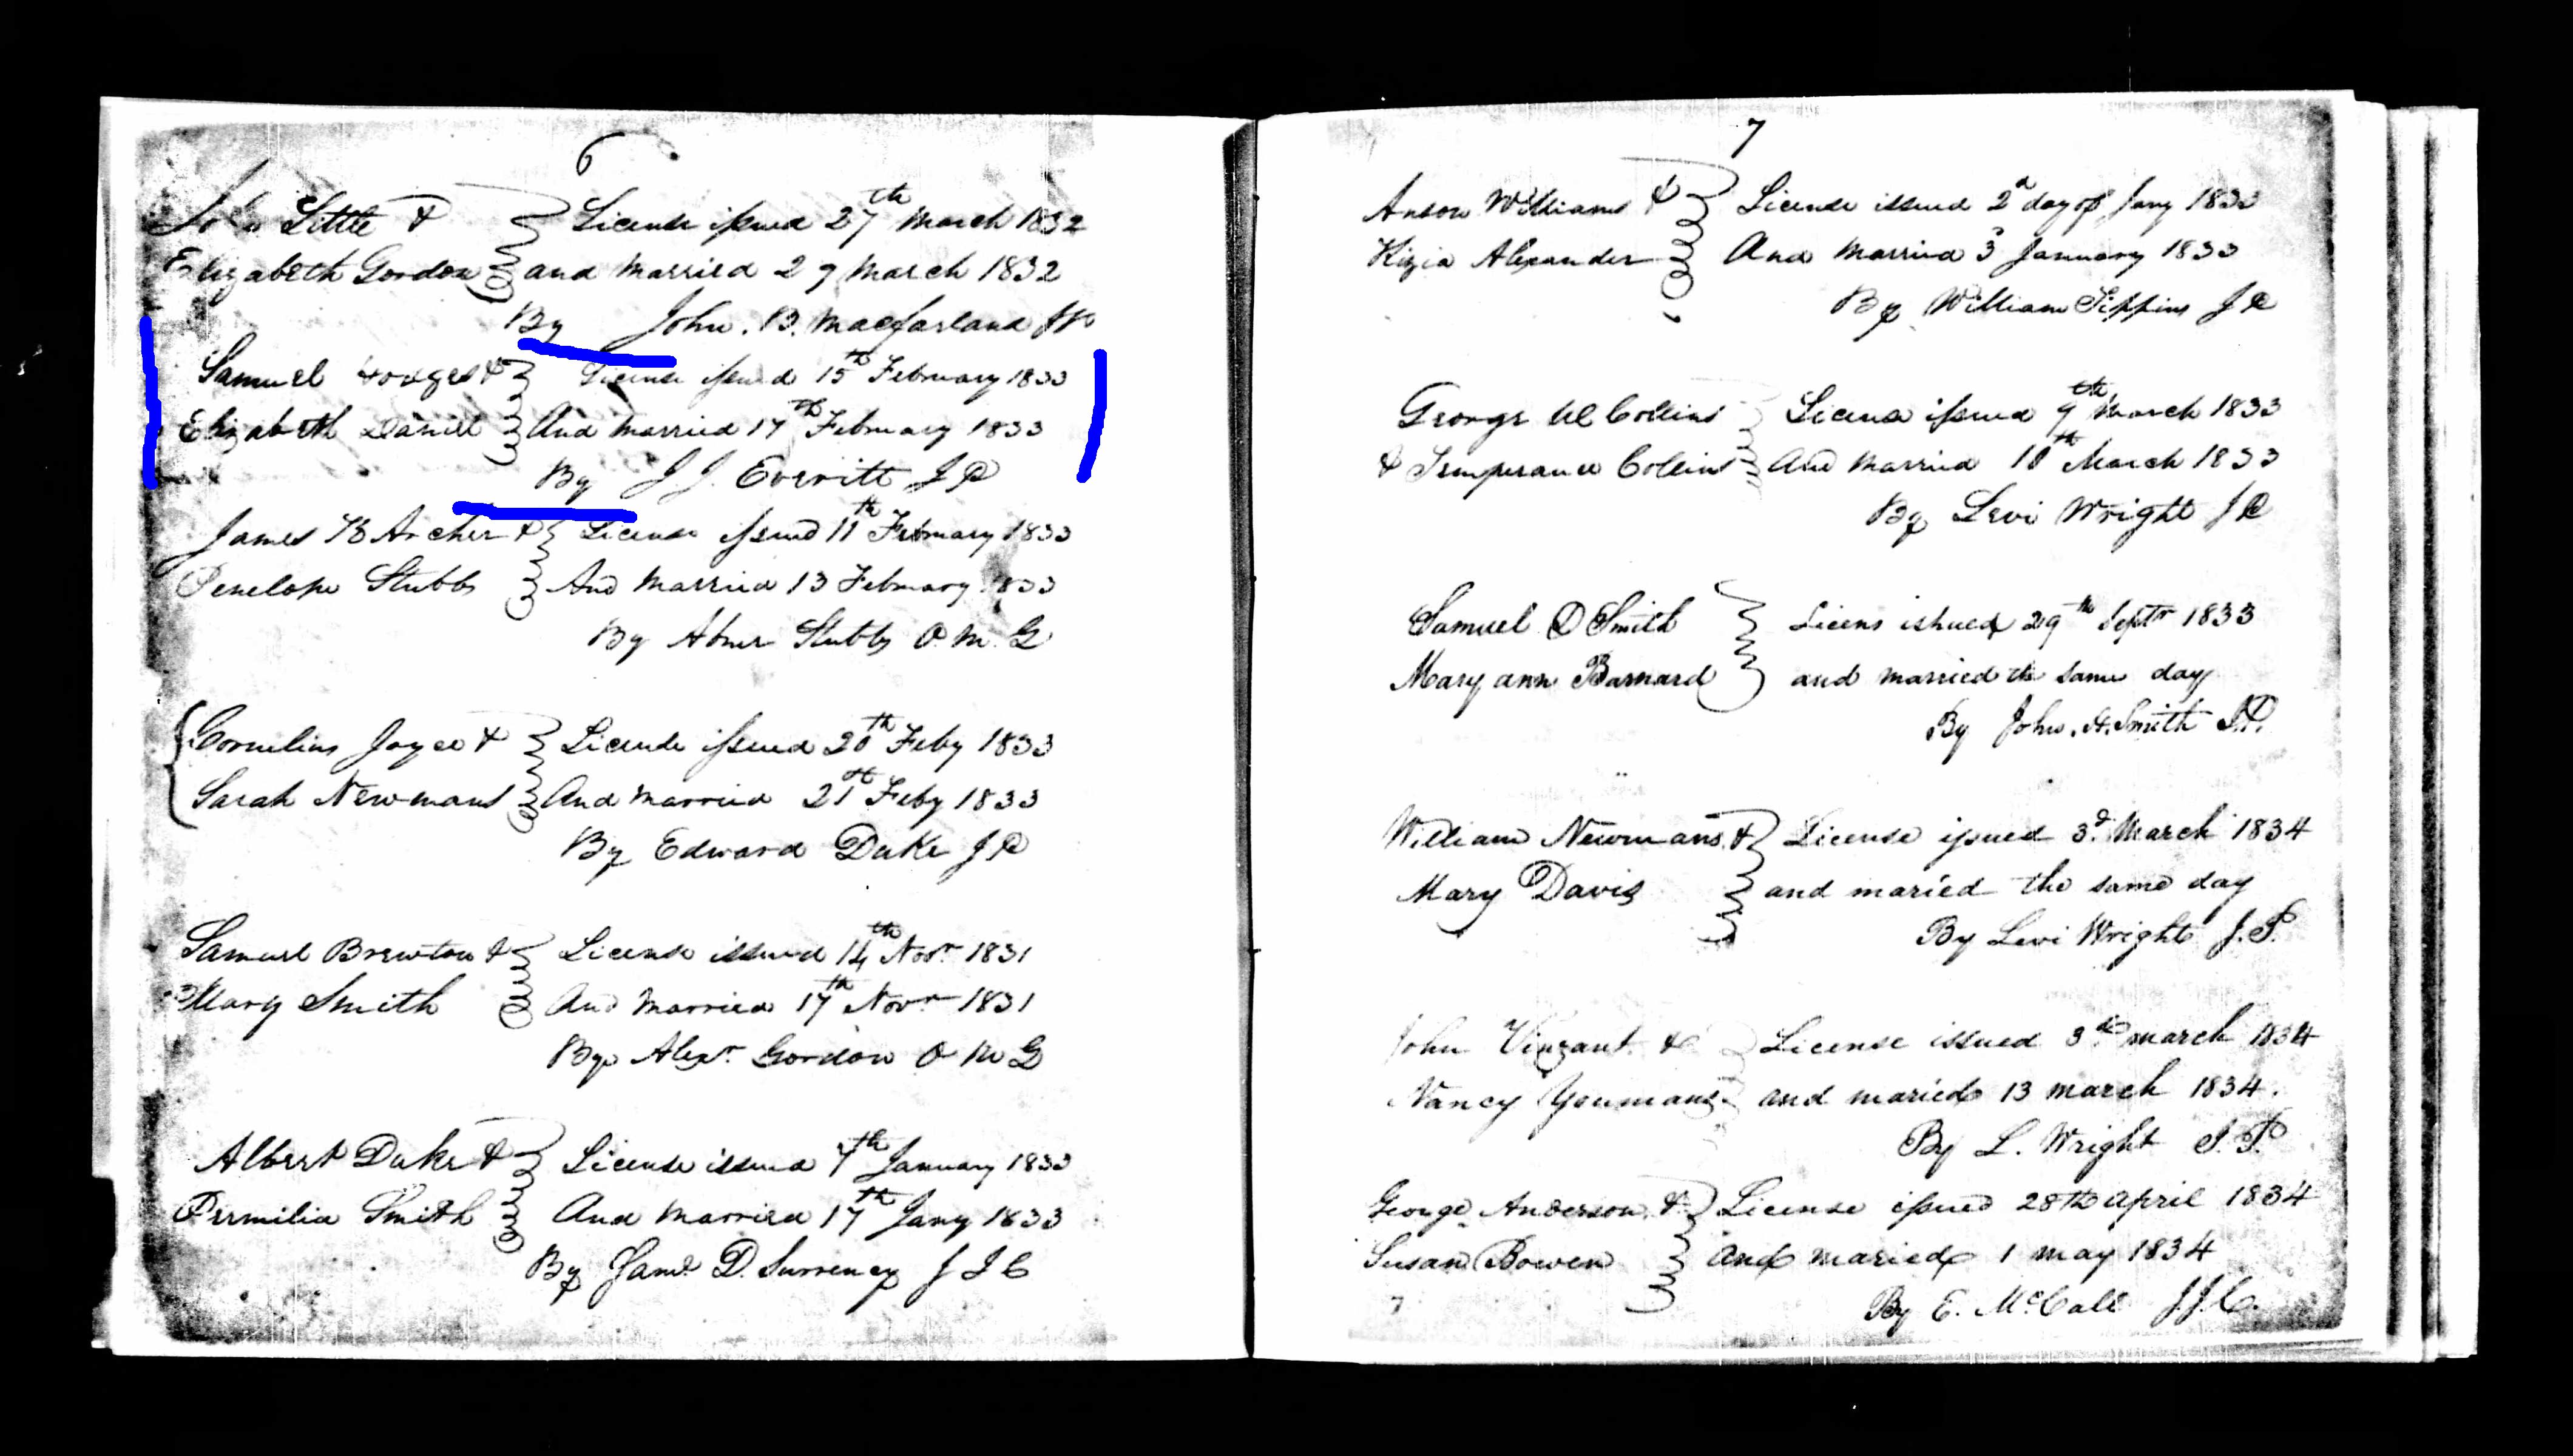 6
John Little &
License issued 27th March 1832
Elizabeth Gordon
and married 29 March 1832
By John. B. Macfarland JP
Samuel Hodges &
License issued 15th February 1833
Elizabeth Daniell
And married 17th February 1833
By J J. Everitt J P
James B Archer &
License issued 11th February 1833
Penelope Stubbs
And married 13 February 1833
By Abner Stubbs O. M. G
Cornelius Joyce &
License issued 20th Feby 1833
Sarah Newmans
And married 21st Feby 1833
By Edward Duke J P
Samuel Brewton &
License issued 14th Novr 1831
Mary Smith
And married 17th Novr 1831
By Alexr Gordon O M G
Albert Duke &
License issued 7th January 1833
Permilia Smith
And married 17th Jany 1833
By D. Surrency J I C
7
Anson Williams &
License issued 2d day of Jany 1833
Kizia Alexander
And married 3 January 1833
By William Tippins J P
George Collins
License issued 9th March 1833
& Temperance Collins
And married 10th March 1833
By Levi Wright J P
Samuel D Smith
Licens ishued 29th Septr 1833
Mary ann Barnard
and married the same day
By John. A. Smith J.P.
William Newmans &
License issued 3d March 1834
Mary Davis
and maried the same day
By Levi Wright J.P.
John Vinzant &
License issued 3d march 1834
Nancy Youmans
and maried 13 march 1834.
By L. Wright J.P.
George Anderson &
License issued 28th april 1834
Susan Bowen
and maried 1 may 1834
By E. McCall J.J.C.